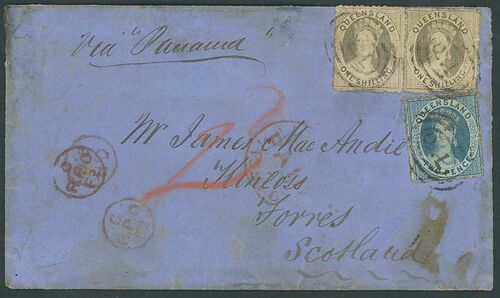 Via "Panama"
QUEENSLAND QUEENSLAND
ONE SHILLING ONE SHILLING
QUEENSLAND
PENCE
Mr James MacAndie
Kinloss
Forres
Scotland